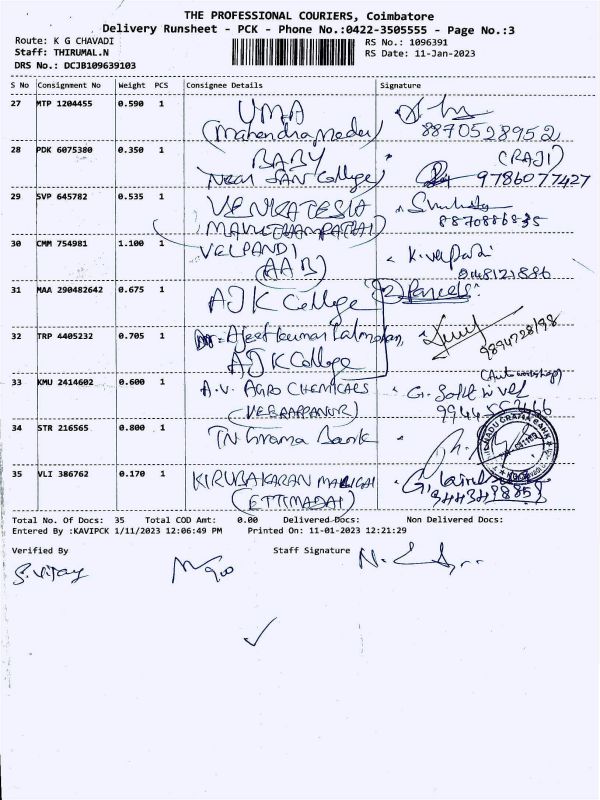 THE PROFESSIONAL COURIERS, Coimbatore
Delivery Runsheet - PCK - Phone No.:0422-3505555 - Page No.:3
Route: K G CHAVADI
RS No.: 1096391
Staff: THIRUMAL.N
RS Date: 11-Jan-2023
DRS No.: DCJB109639103
S No Consignment No Weight PCS Consignee Details Signature
27 MTP 1204455 0.590 1 UMA
(Mahendra Medu) 8870528952
28 PDK 6075380 0.350 1 BABY (RAJI)
Near SAN College) 9786077427
29 SVP 645782 0.535 1 VENKATESH
MAVUTHAMPATHAI) 8870886835
30 CMM 754981 1.100 1 VELPANDI K.velpandi
(AAB)
31 MAA 290482642 0.675 1 AJK College (2) Parcels.
32 TRP 4405232 0.705 1 Dr= Ajeet kumar Lalmohan,
AJK College
33 KMU 2414602 0.600 1 A.V. AGRO CHEMICALS (Auto workshop)
G. Sakthivel
34 STR 216565 0.800 1 TN Grama Bank
35 VLI 386762 0.170 1 KIRUBAKARAN MALIGAI
(ETTIMADAI)
Total No. Of Docs: 35 Total COD Amt: 0.00 Delivered Docs: Non Delivered Docs:
Entered By :KAVIPCK 1/11/2023 12:06:49 PM Printed On: 11-01-2023 12:21:29
Verified By Staff Signature
S. Vijay